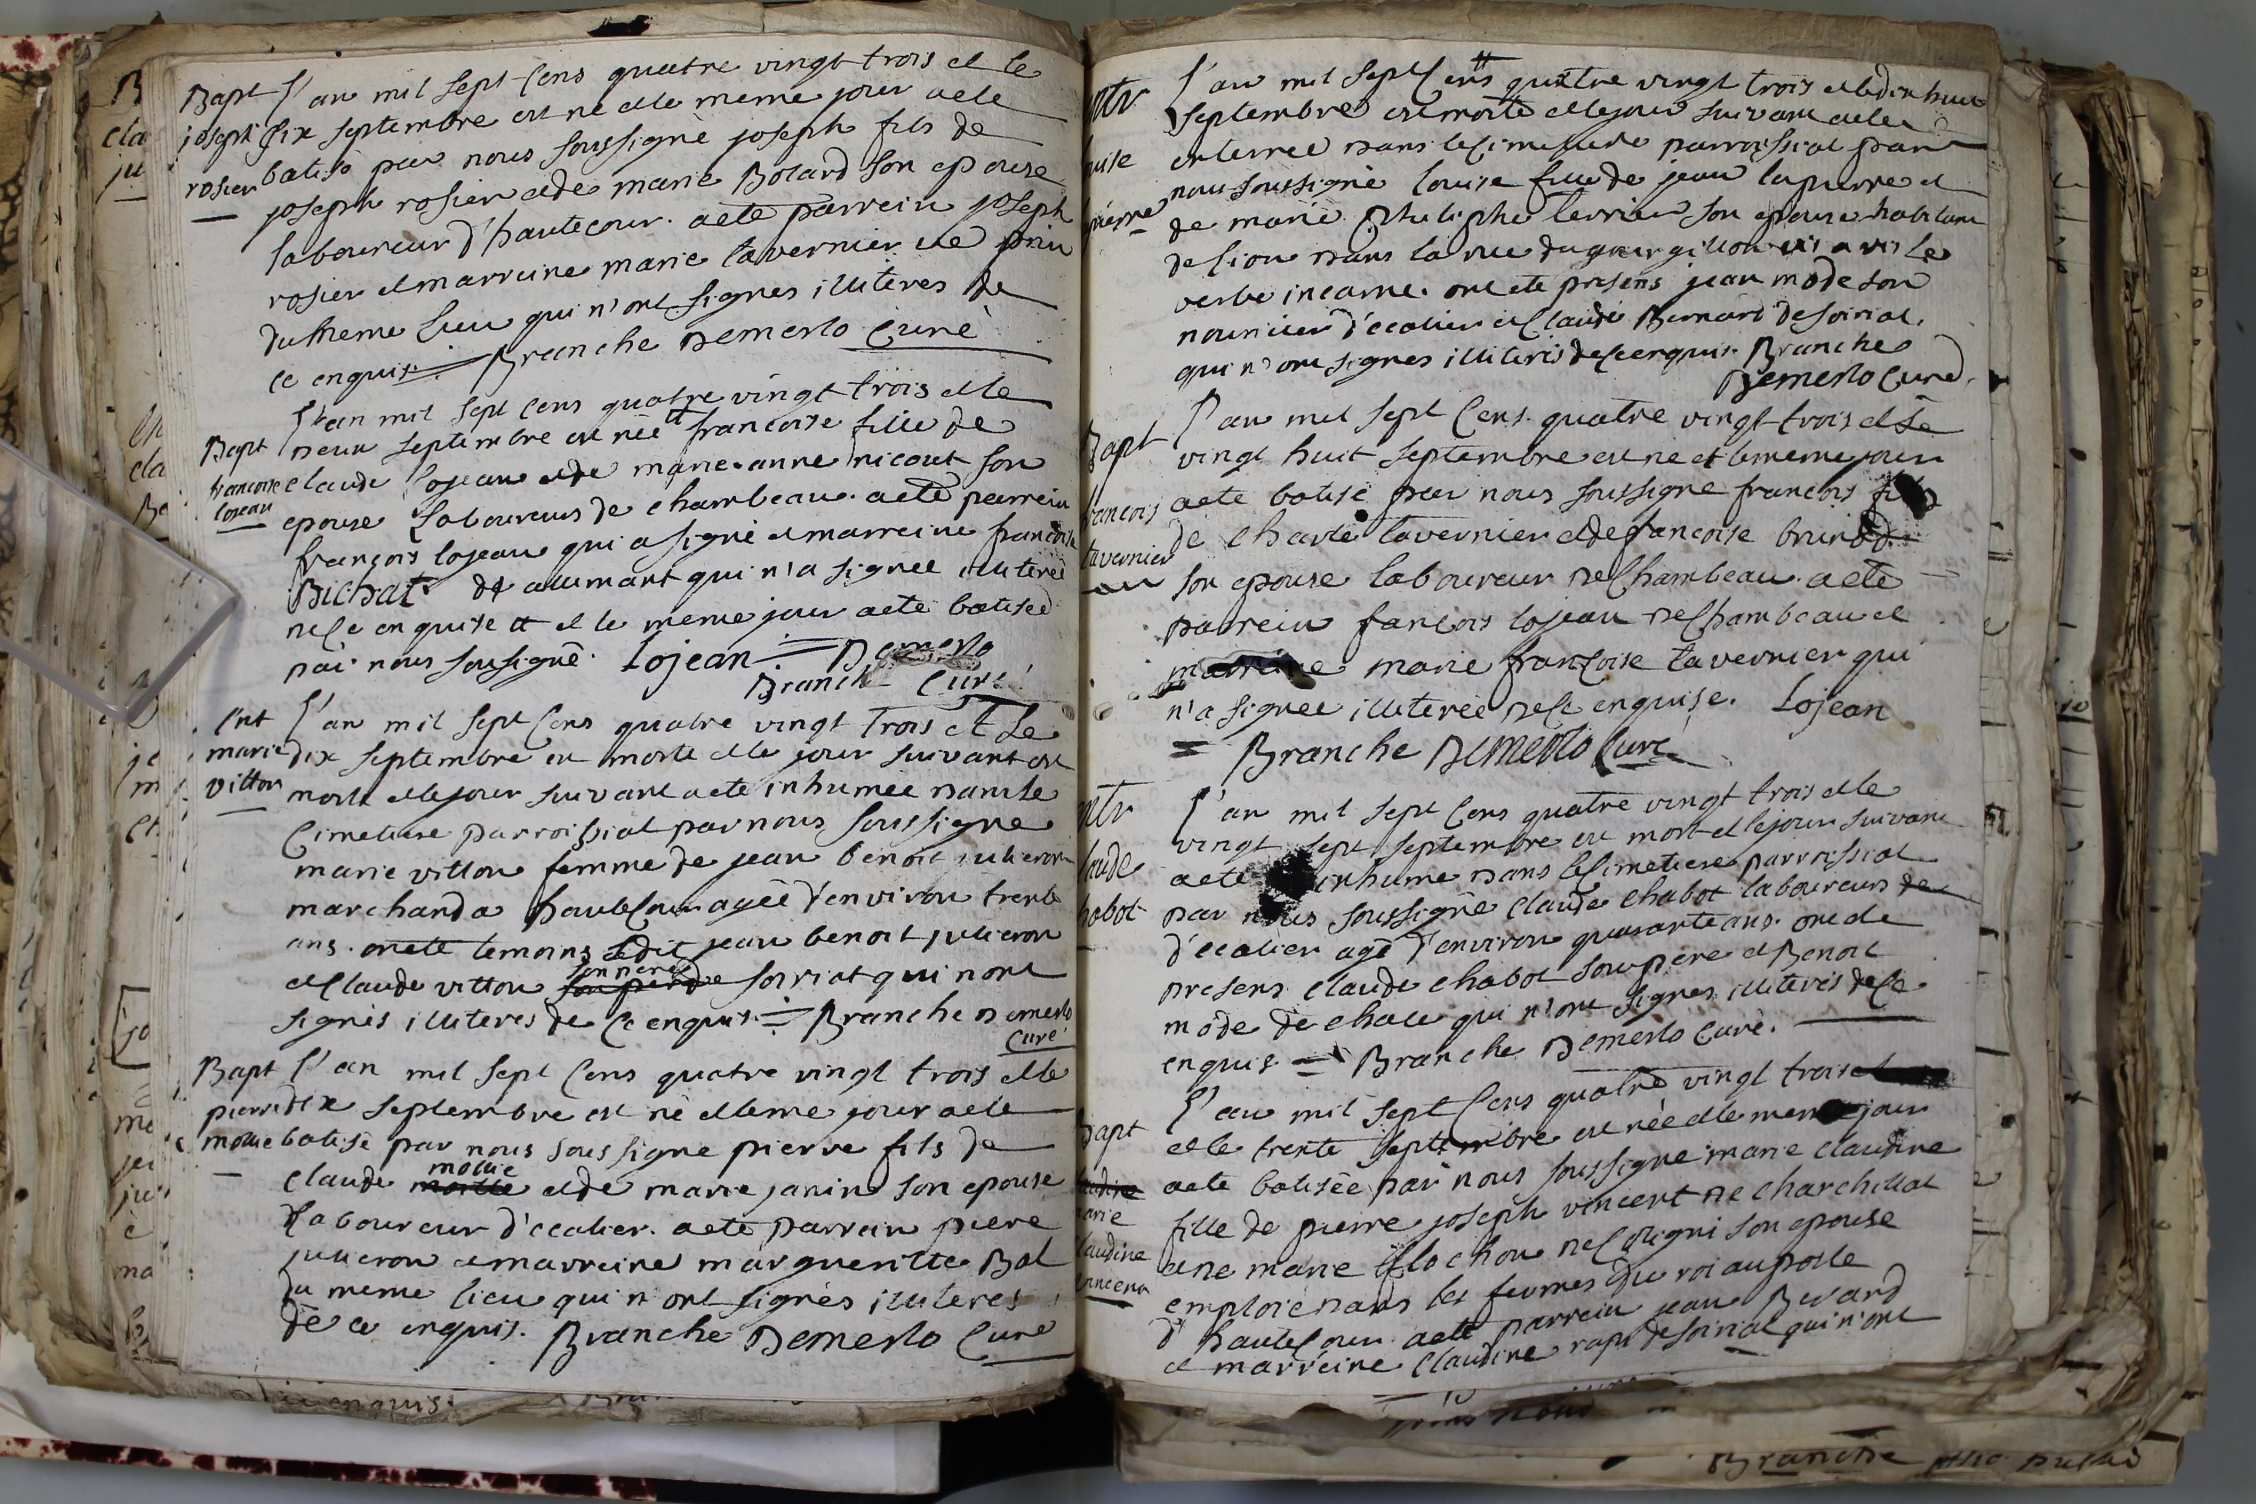 Bapt
joseph
rosier
l'an mil sept cens quatre vingt trois et le
six septembre est né et le meme jour a eté
batisé par nous soussigné joseph fils de
joseph rosier et de marie Bolard son epouse
laboureur d'hautecour. a eté parrein joseph
rosier et marreine marie tavernier
du meme lieu qui n'ont signés illiteres de
ce enquis. Branche Demerlo Curé
Bapt
francoise
lojean
l'an mil sept cens quatre vingt trois et le
neuf septembre est née francoise fille de
claude lojean et de marie anne nicout son
epouse laboureurs de chambeau. a eté parrein
françois lojean qui a signé et marreine francoise
Bichat de qui n'a signée illiterée
de ce enquise et le meme jour a eté batisée
par nous sousigné. Lojean Demerlo
Branche Curé
Ent
marie
vitton
l'an mil sept cens quatre vingt trois et le
dix septembre est morte et le jour suivant est
morte et le jour suivant a eté inhumée dans le
cimetiere parroissial par nous soussigné
marie vitton femme de jean benoit julieron
marchand a hautecour agée d'environ trente
ans. ont eté temoins ledit jean benoit julieron
et claude vitton son pere son frere de soiriat qui n'ont
signés illiteres de ce enquis. Branche Demerlo
Curé
Bapt
pierre
mollie
l'an mil sept cens quatre vingt trois et le
dix septembre est né et le me jour a eté
batisé par nous soussigné pierre fils de
claude mollie et de marie janin son epouse
laboureur d'ecolier. a eté parrein piere
julieron et marreine margueritte Bal
du meme lieu qui n'ont signés illiteres
de ce enquis. Branche Demerlo Curé
ntr
uise
pierre
l'an mil sept cens quatre vingt trois et le dix huit
septembre est morte et le jour suivant a eté
enterrée dans le cimetiere parroissial par
nous soussigné louise fille de jean lapierre et
de marie philiphe terrier son epouse habitant
de lion dans la rue du gourgillon vis a vis le
verbe incarné. ont eté presens jean mode son
nouricier d'ecolier et claude Bernard de soiriat.
qui n'ont signés illiterés de ce enquis. Branche
Demerlo Curé.
Bapt
francois
tavernier
l'an mil sept cens quatre vingt trois et le
vingt huit septembre est né et le meme jour
a eté batisé par nous soussigné francois fils
de charle tavernier et de francoise brunod
son epouse laboureur de chambeau. a eté
parrein fancois lojean de chambeau et
marreine marie francoise tavernier qui
n'a signée illiterée de ce enquise. Lojean
= Branche Demerlo Curé
ntr
laude
habot
l'an mil sept cens quatre vingt trois et le
vingt sept septembre est mort et le jour suivant
a eté inhumé dans le cimetiere parroissial
par nous soussigné claude chabot laboureurs de
d'ecolier agé d'environ quarante ans. ont eté
presens claude chabot son pere et Benoit
mode de qui n'ont signés illiterés de ce
enquis = Branche Demerlo Curé.
Bapt
marie
laudine
vincent
l'an mil sept cens quatre vingt trois et
et le trente septembre est née et le meme jour
a eté batisée par nous soussigné marie claudine
fille de pierre joseph vincent de charchillat
et de marie clochon de coligni son epouse
emploié dans les fermes du roi au poste
d'hautecour. a eté parrein jean Bevard
et marreine claudine rapi de soiriat qui n'ont